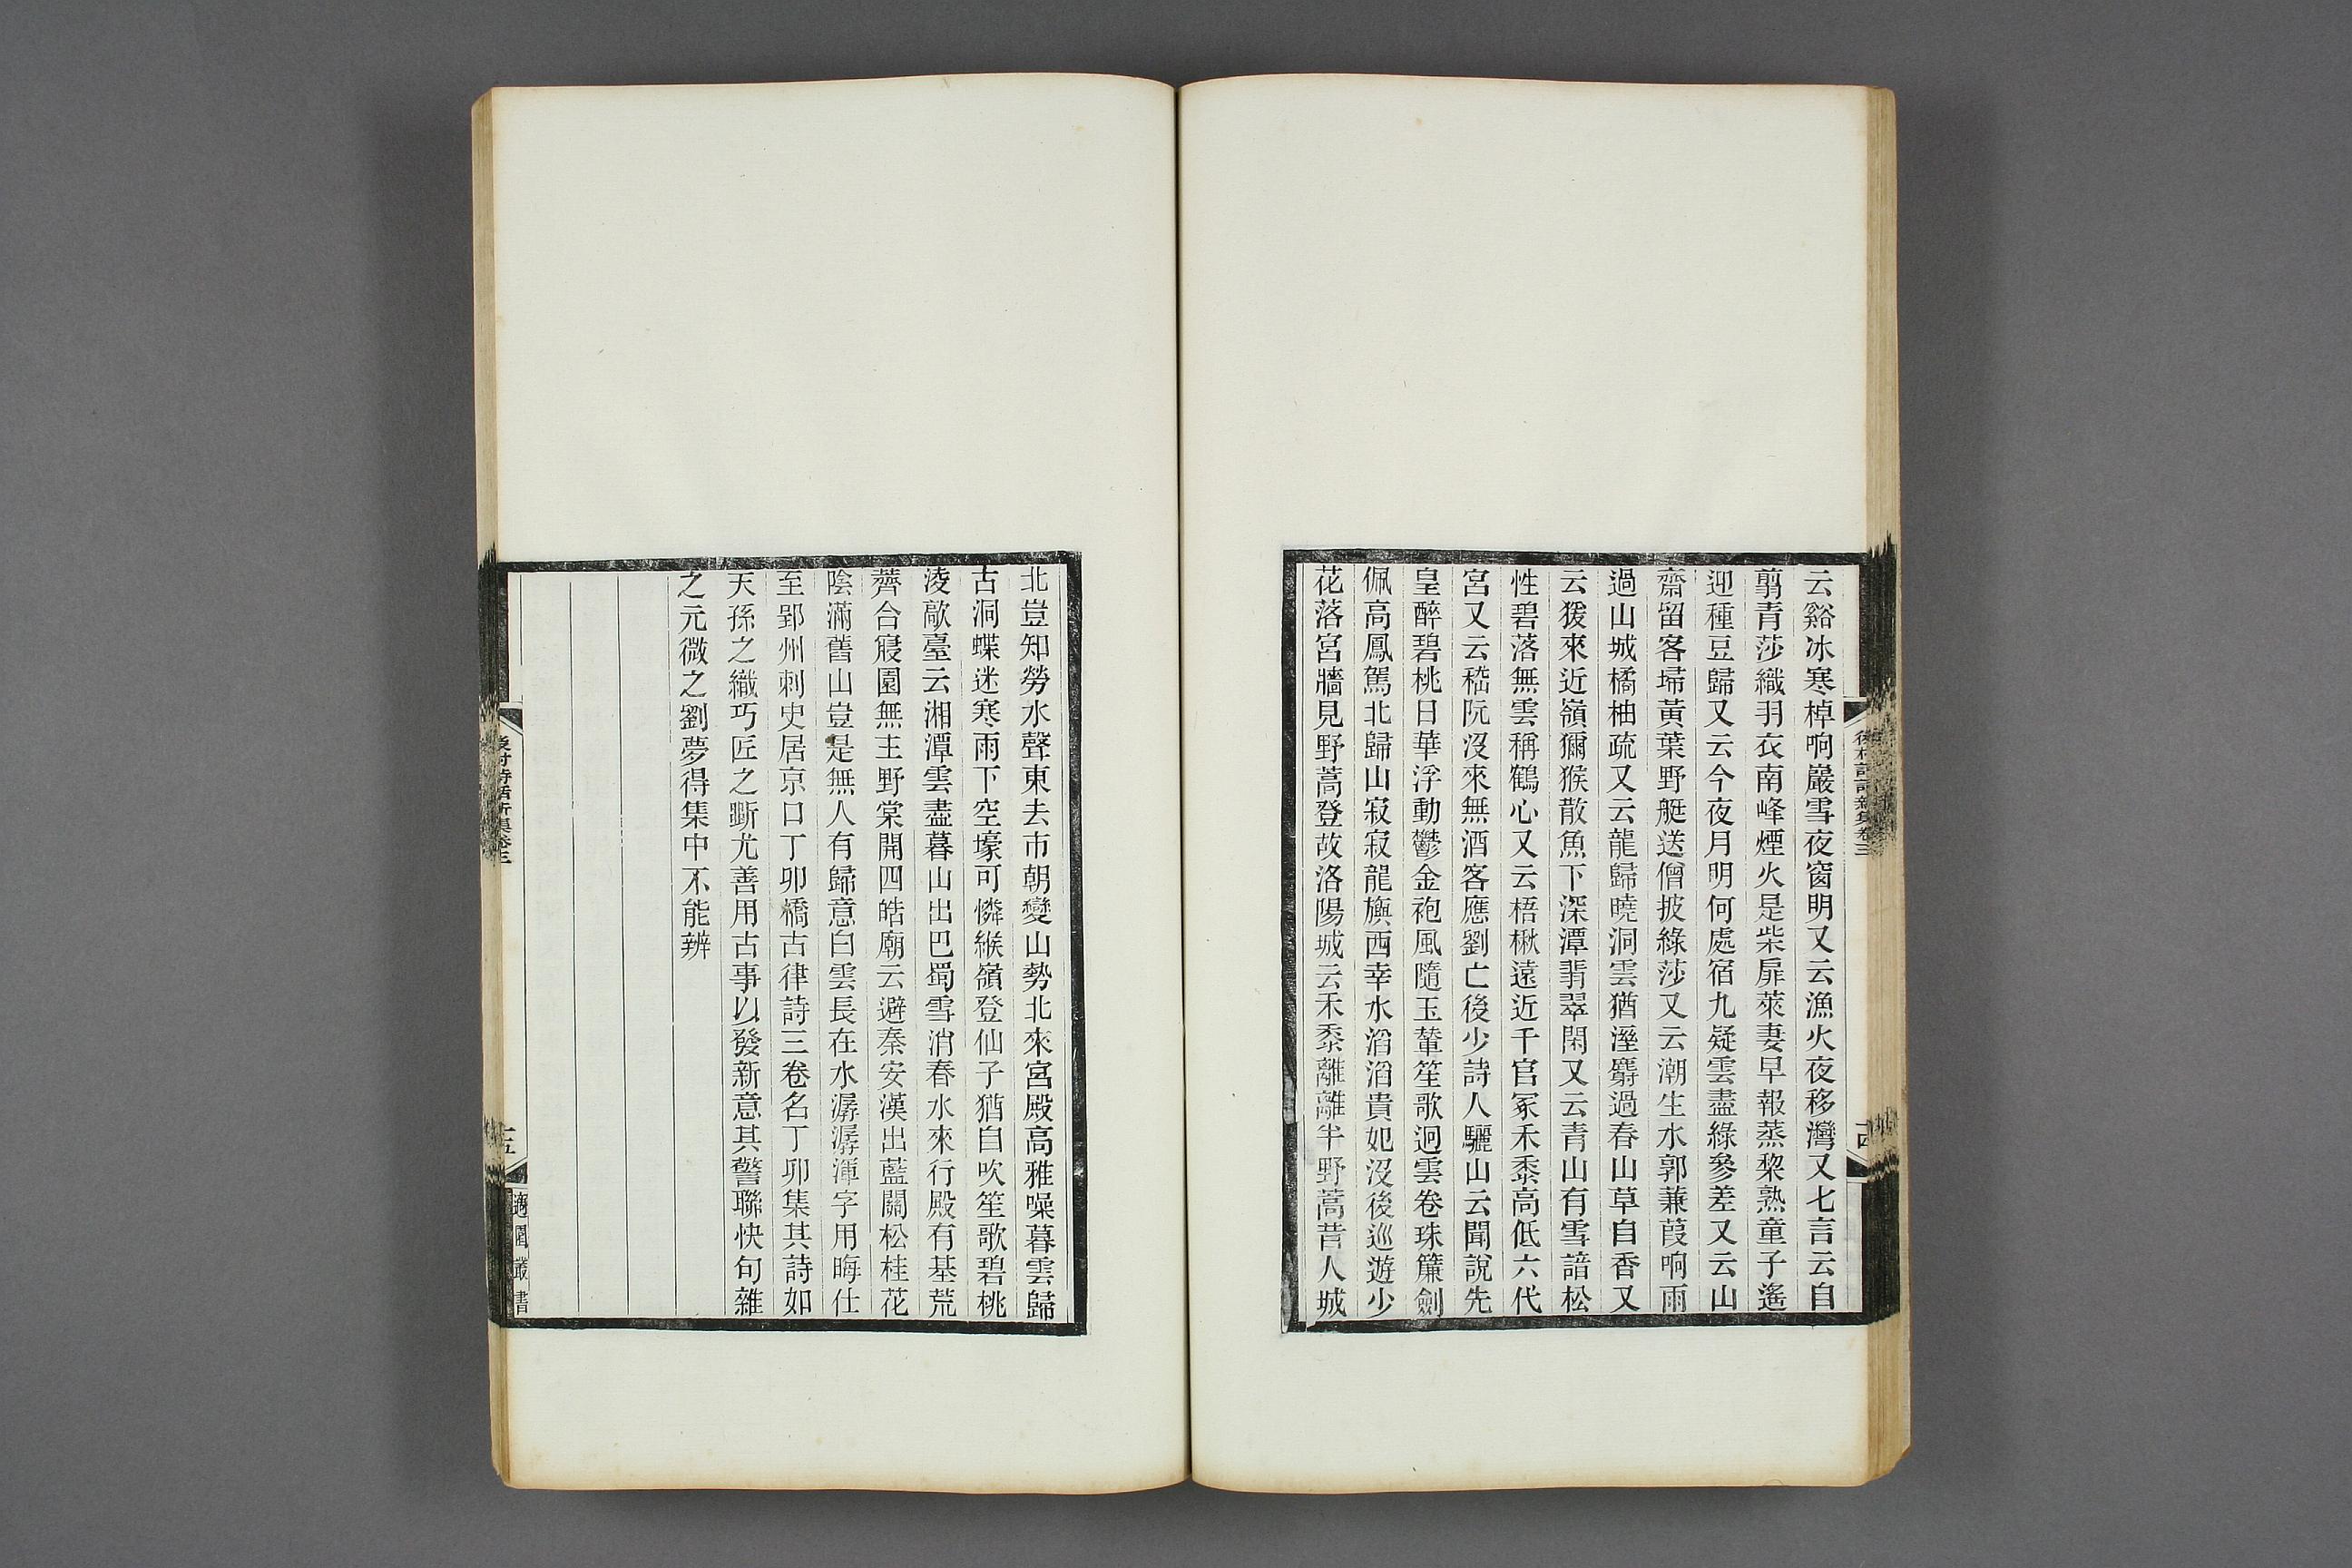 云谿冰寒棹響巖雪夜窗明又云漁火夜移灣又七言云自
翦青莎織羽衣南峰煙火是柴扉萊妻早報蒸黎熟童子遙
迎種豆歸又云今夜月明何處宿九疑雲盡綠參差又云山
齋留客埽黃葉野艇送僧披綠莎又云潮生水郭蒹葭响雨
過山城橘柚疏又云龍歸曉洞雲猶溼麝過春山草自香又
云猨來近嶺獼猴散魚下深潭翡翠閑又云青山有雪諳松
性碧落無雲稱鶴心又云梧楸遠近千官冢禾黍高低六代
宮又云嵇阮沒來無酒客應劉亡後少詩人驪山云聞說先
皇醉碧桃日華浮動鬱金袍風隨玉輦笙歌迥雲卷珠簾劍
佩高鳳駕北歸山寂寂龍旟西幸水滔滔貴妃沒後巡遊少
花落宮牆見野蒿登故洛陽城云禾黍離離半野蒿昔人城
北豈知勞水聲東去市朝變山勢北來宮殿高雅噪暮雲歸
古洞蝶迷寒雨下空壕可憐緱嶺登仙子猶自吹笙歌碧桃
淩歊臺云湘潭雲盡暮山出巴蜀雪消春水來行殿有基荒
薺合寢園無主野棠開四皓廟云避秦安漢出藍關松桂花
陰滿舊山豈是無人有歸意白雲長在水潺潺渾字用晦仕
至郢州刺史居京口丁卯橋古律詩三卷名丁卯集其詩如
天孫之織巧匠之斲尤善用古事以發新意其警聯快句雜
之元微之劉夢得集中不能辨
後村詩話新集卷三
十四
後村詩話新集卷三
十五
適園叢書